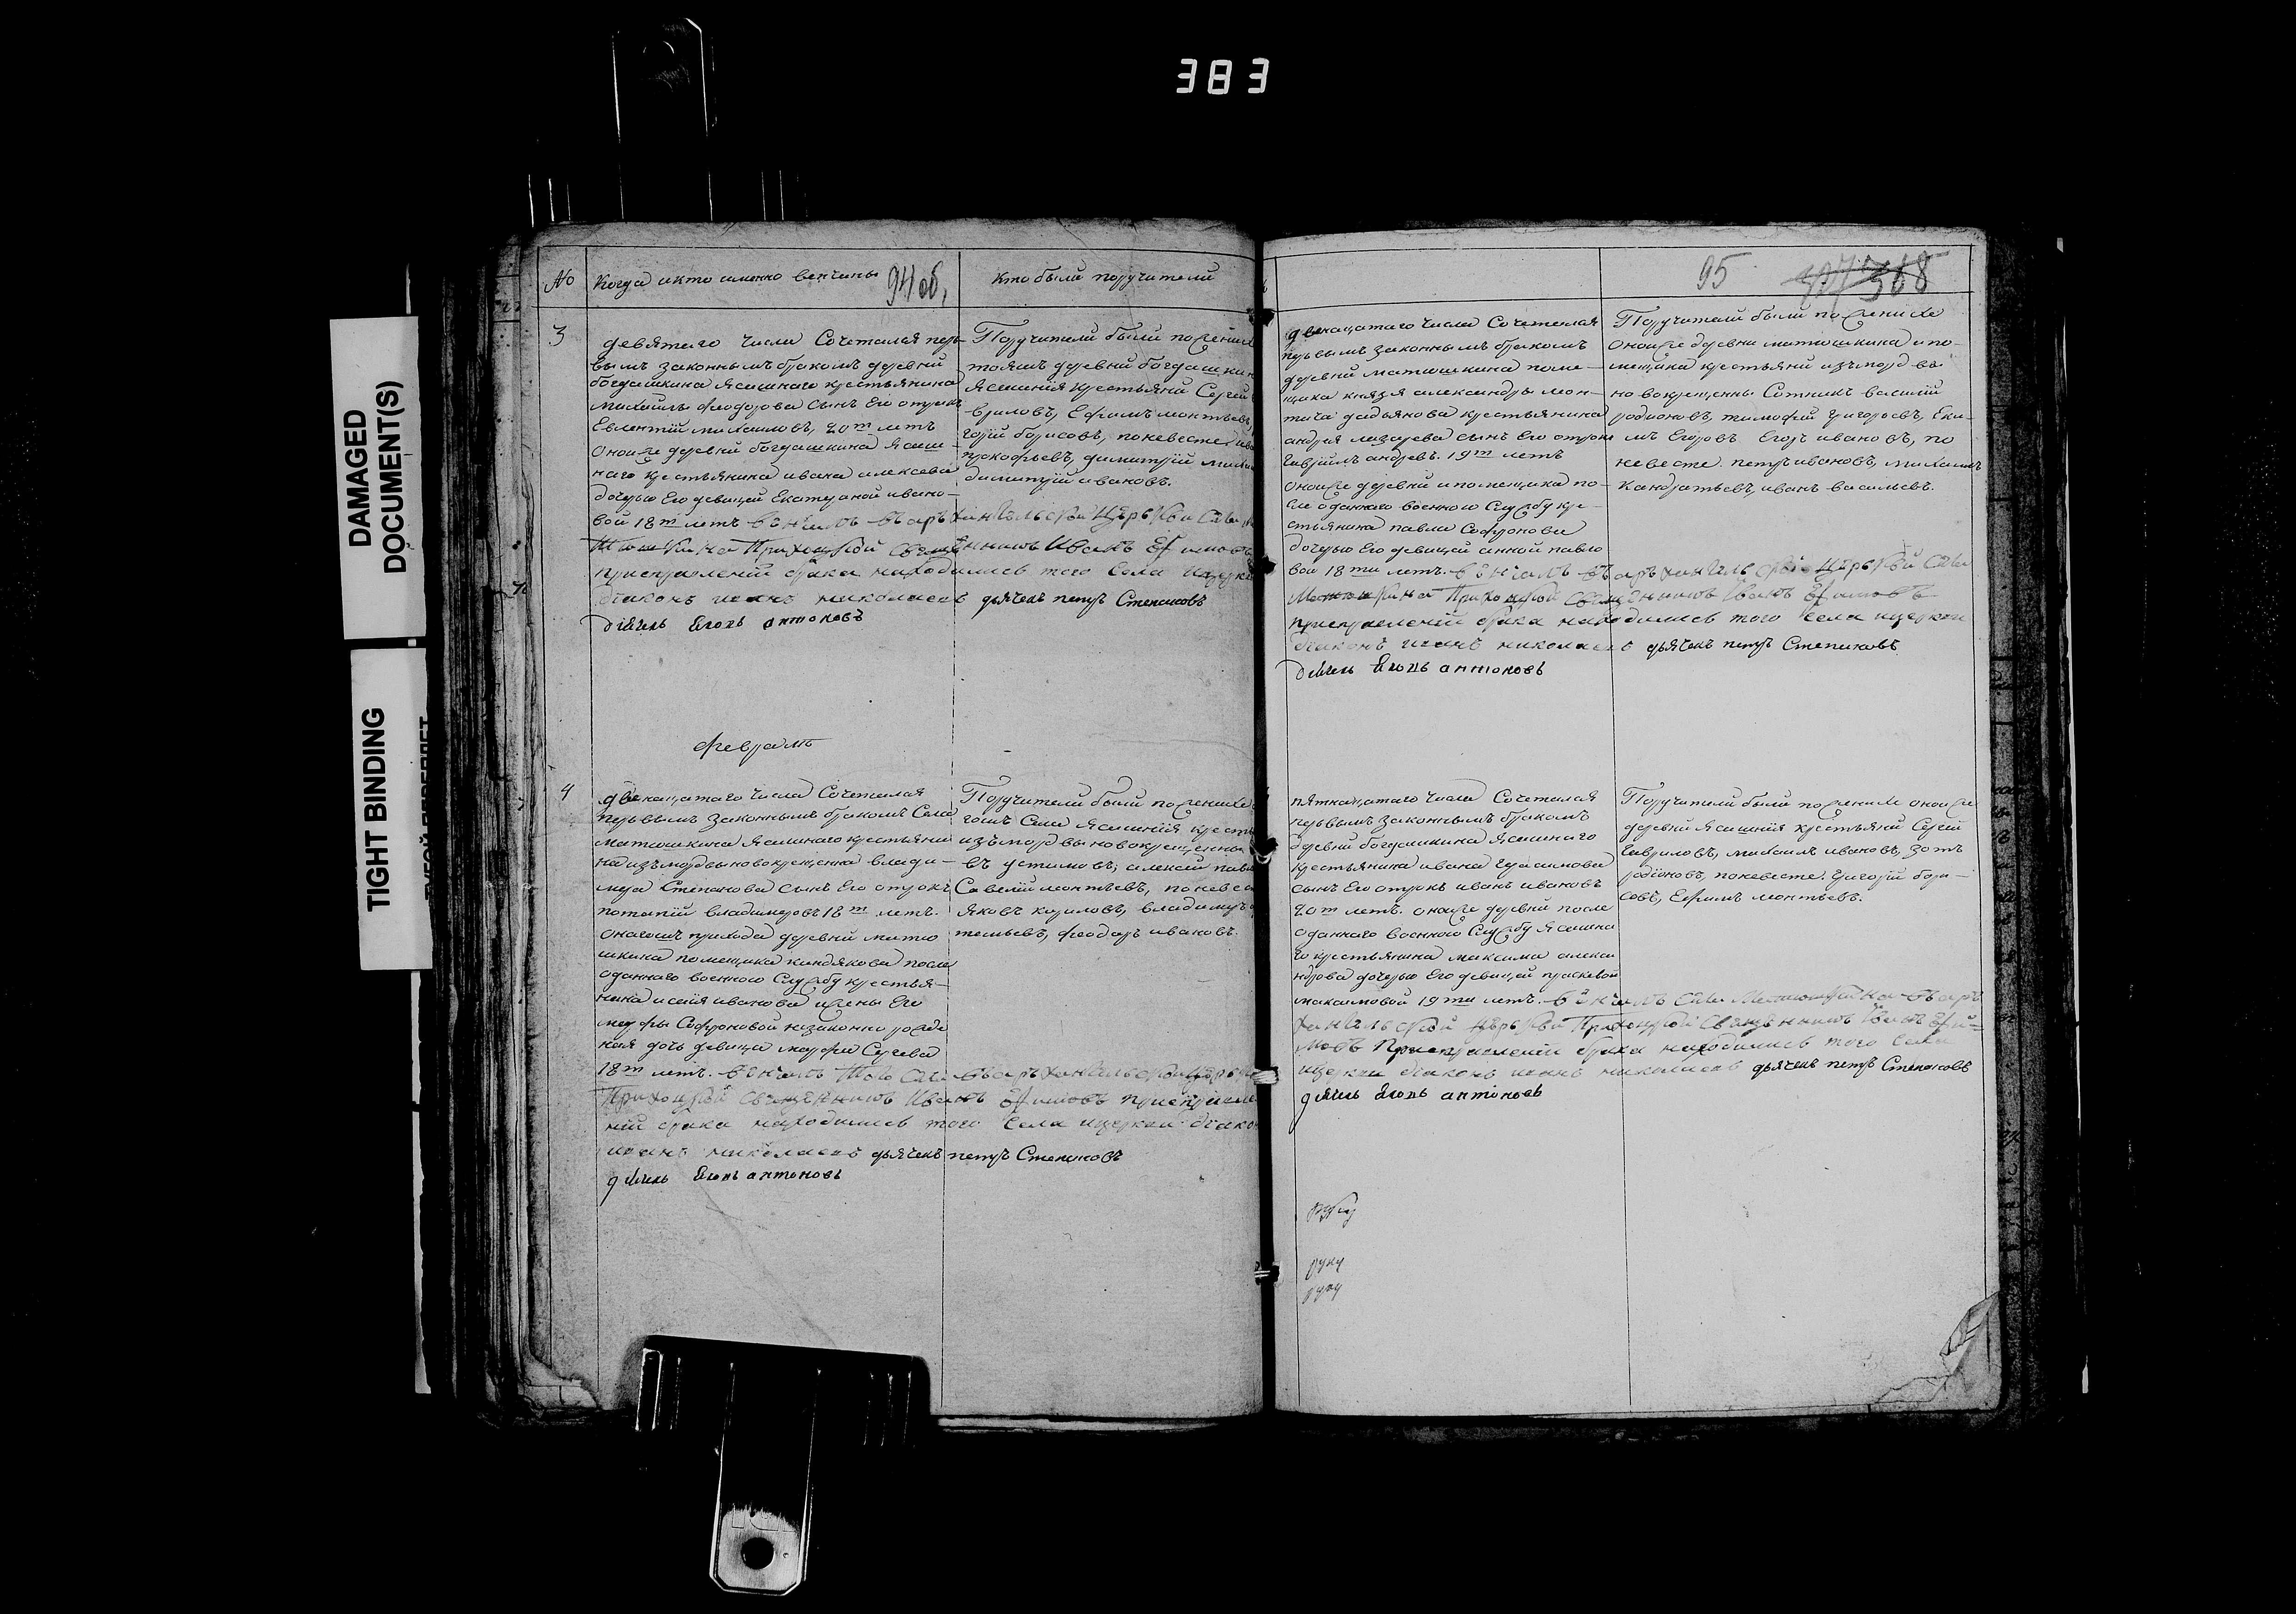 383
DAMAGED
DOCUMENT(S)
TIGHT BINDING
No
Когда икто имянно венчаны
94 об,
кто были поручители
3
девятаго числа Сочетался пер-
вымъ законнымъ бракомъ деревни
богдашкина Ясашнаго крестьянина
михаилы феодорова сынъ Его отрокъ
Евлентий михаиловъ, 20т летъ
Оноиже деревни богдашкина Ясаш-
наго крестьянина ивана алексеева
дочерью Его девицей Екатериной ивано-
вой 18т летъ венчалъ въ архангельской церькви села
приходской священникъ Иванъ Ефимовъ
приисправлении брака находились того села
диаконъ иванъ николаевъ дьячекъ петръ Степановъ
антоновъ
Поручители были по жених
тояжъ деревни богдашкин
Ясашния крестьяня Сергей
вриловъ, Ефимъ леонтьевъ,
горий борисовъ, поневесте ива
прокофьевъ, димитрий миха
димитрий ивановъ.
февраль
4
двенацатаго числа Сочетался
перьвымъ законнымъ бракомъ Села
матюшкина Ясашнаго крестьяни
на изъ мордвы новокрещенна влади-
мера Степанова сынъ Его отрокъ
потапий владимеровъ 18т летъ.
Оногожъ прихода деревни матю
шкина помещика киндякова после
оданнаго военною Службу крестья-
нина исаия иванова жены Его
марфы Софроновой незаконно рожде
ная дочь девица марфа Сергева
18т летъ. венчалъ того села въ архангельской церькве
Приходской священникъ Иванъ Ефимовъ приисправле
нии брака находились того села ицеркви диако
иванъ николаевъ дьячекъ петръ Степановъ
антоновъ
Поручители были по женихе
гожъ Села Ясашния кресть
изъ мордвы новокрещенны
въ устимовъ, алексей павл
Савелий леонтьевъ, поневес
Яковъ кириловъ, владимеръ
темьевъ, феодоръ ивановъ.
95
двенацатаго числа Сочетался
перьвымъ законнымъ бракомъ
деревни матюшкина поме-
щика князя александры леон-
тича дадьянова крестьянина
андрея лазарева сынъ Его отрокъ
Гаврилъ андревъ. 19т летъ
Оноиже деревни ипомещика по-
сле оданнаго военною Службу кре-
стьянина павла Софронова
дочерью Его девицей анной павло
вой 18ти летъ. венчалъ въ архангельской церькви села
Приходской священникъ Иванъ Ефимовъ
приисправлении брака находились того села ицеркви
диаконъ иванъ николаевъ дьячекъ петръ Степановъ
антоновъ
Поручители были по женихе
Оноиже деревни матюшкина ипо-
мещика крестьяня изъ мордвы
новокрещенны Сотникъ василий
родионовъ, тимофей григоровъ, Еки-
мъ Егоровъ Егоръ ивановъ, по
невесте. петръ ивановъ, михаилъ
Кандратьевъ, иванъ васильевъ.
пятнацатаго числа Сочетался
перьвымъ законнымъ бракомъ
деревни богдашкина Ясашнаго
крестьянина ивана Герасимова
сынъ Его отрокъ иванъ ивановъ
20т летъ. оноиже деревни после
оданнаго военною Службу Ясашна
го крестьянина максима алекса
ндрова дочерью Его девицей прасковой
максимовой 19ти летъ. венчалъ села Матюшкина въ арх
ангельской церькви Приходской священникъ Иванъ Ефи-
мовъ Приисправлении брака находились того села
ицеркви диаконъ иванъ николаевъ дьячекъ петръ Степановъ
антоновъ
Поручители были по женихе оноиже
деревни Ясашния крестьяня Сергей
Гавриловъ, михаилъ ивановъ, Зотъ
родионовъ, поневесте. григорий бори-
совъ, Ефимъ леонтьевъ.
руку
руку
руку